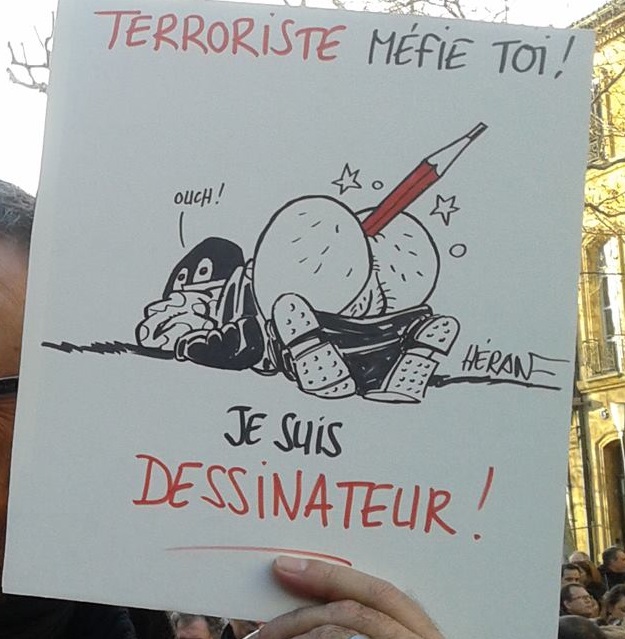 TERRORISTE MÉFIE TOI !
OUCH !
HÉRANE
JE SUIS
DESSINATEUR !